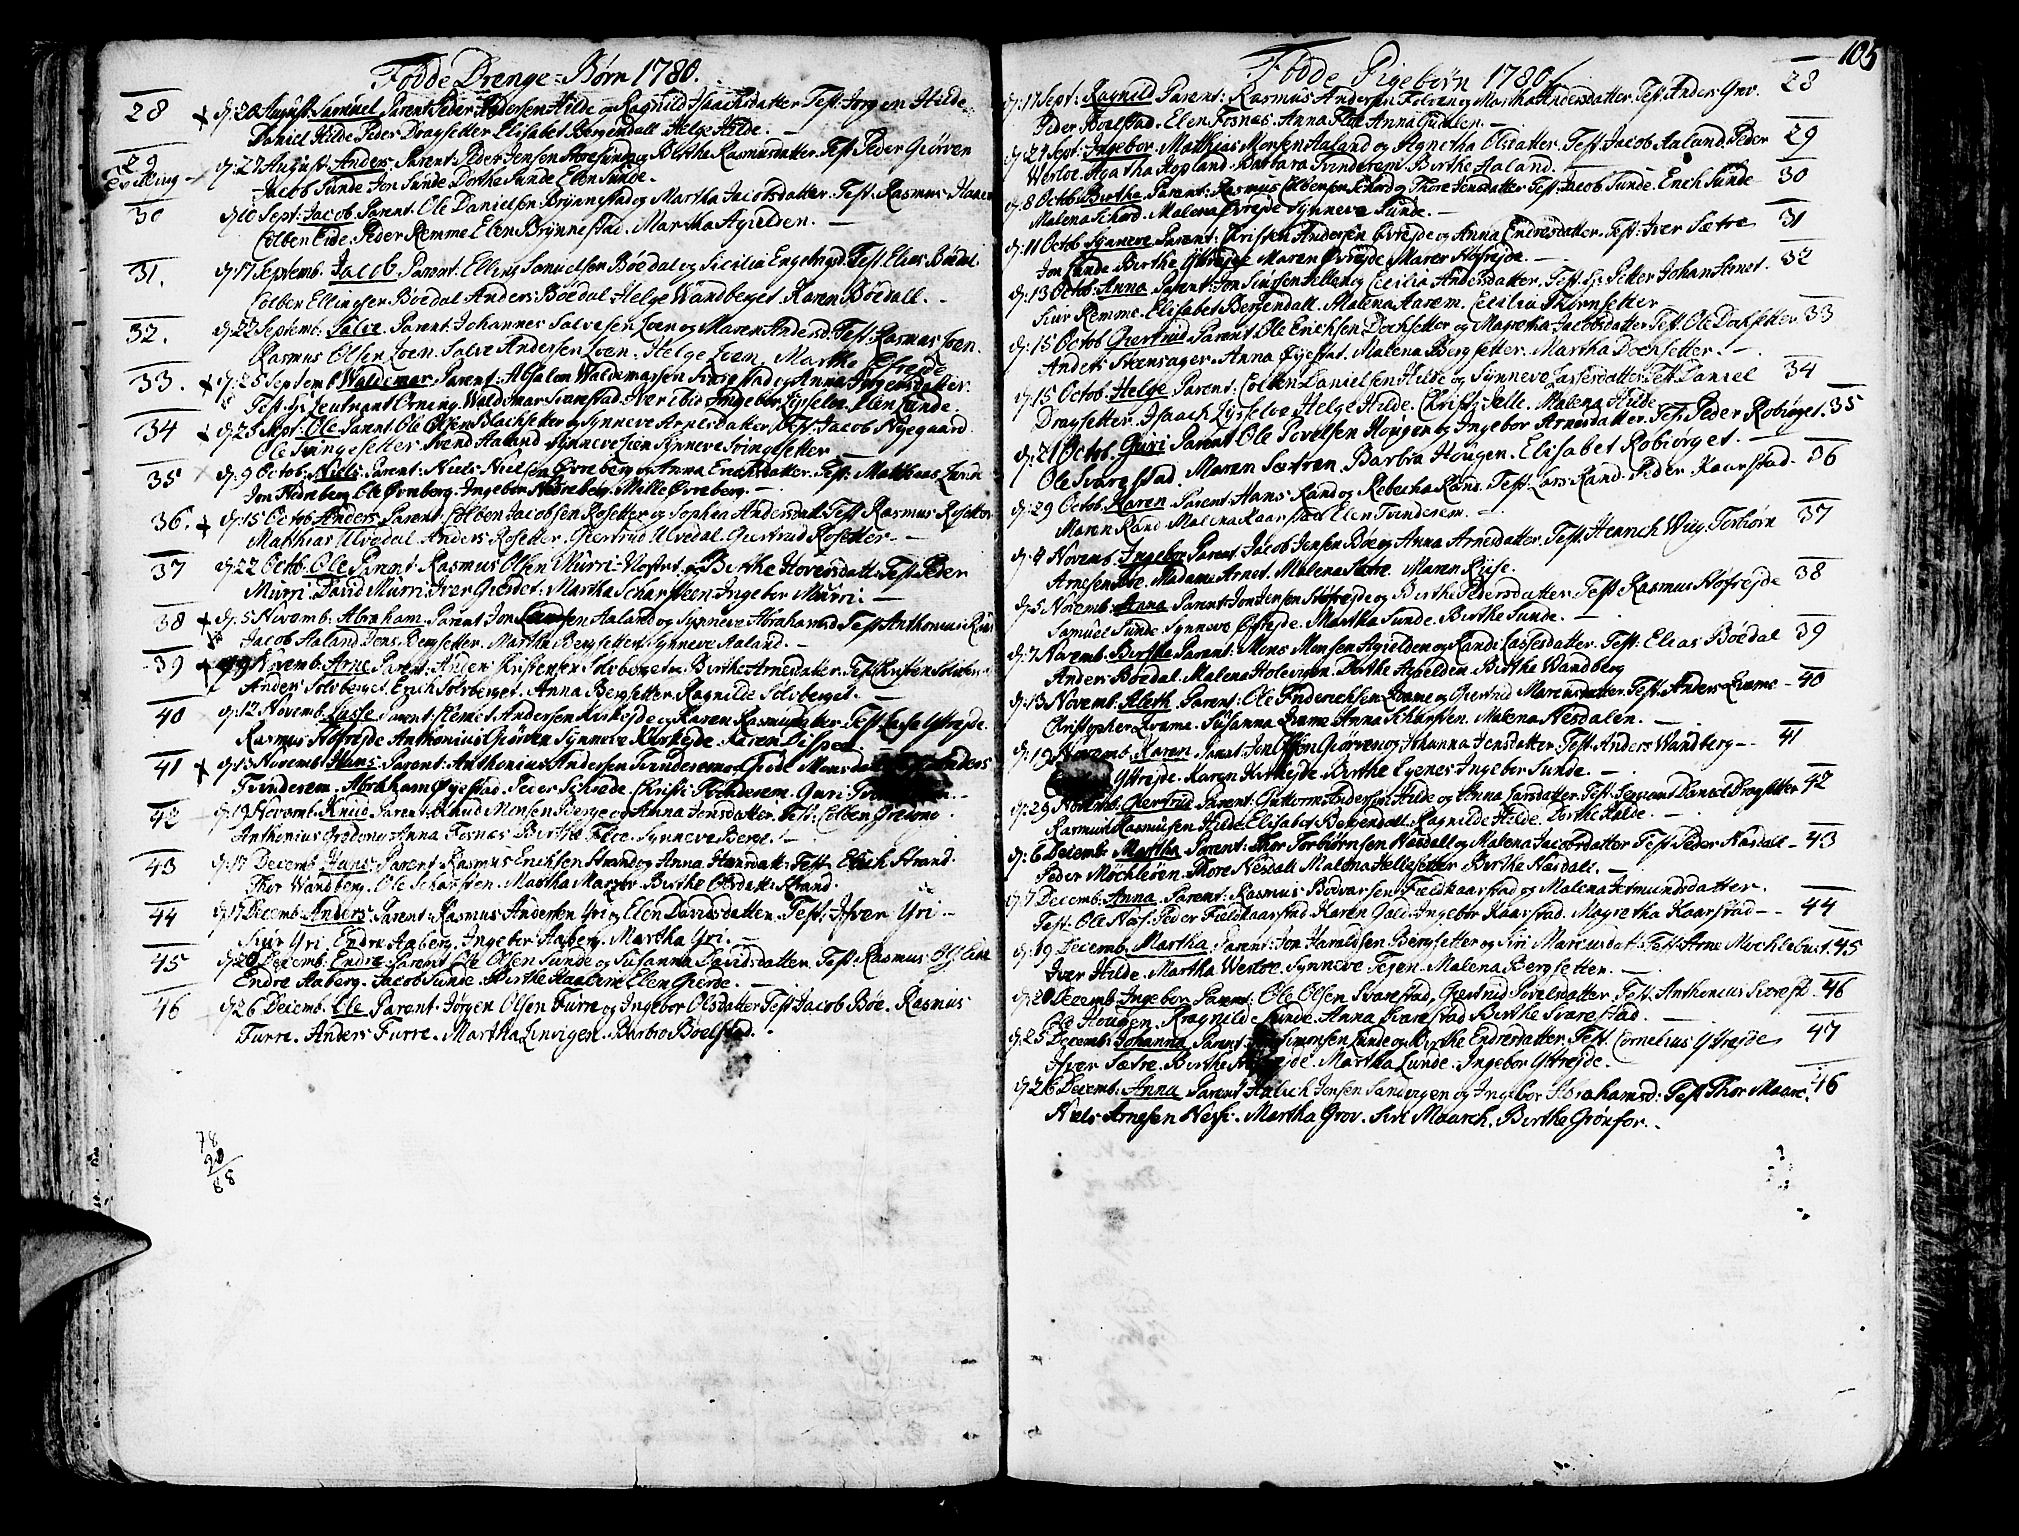 Fødde Drenge-Børn 1780.
28 d: 20 August: Samuel Parent: Peder Andersen Hilde og Ragnild Isachsdatter Test: Jørgen Hilde
Daniel Hilde Peder Dragsetter Elisabet Bergendall Helge Hilde.
29 d: 27 August: Anders. Parent: Peder Jensen og Birthe Rasmusdatter. Test: Peder Giørven
Tvilling Jacob Sunde Jon Sunde Dorthe Sunde Elen Sunde.
30 d: 10 Sept: Jacob Parent. Ole Danielsen Brynnestad og Martha Jacobsdatter. Test: Rasmus
Colben Eide. Peder Remme Elen Brynnestad. Martha Agielden.
31. d: 17 Septemb. Jacob Parent. Elling Samuelsen Bøedal og Sicilia Test: Elias Bødal
Colben Ellingsen Bøedal Anders Bøedal Helge Wandberget Karen Bødall.
32. d: 22 Septemb: Salve. Parent: Johannes Salvesen Loen og Maren Andersd: Test: Rasmus Loen.
Rasmus Olsen Loen. Salve Andersen Loen. Helge Loen. Martha
33. d: 25 Septemb Waldemar Parent: Absalon Waldemarsen og Anna Jørgensdatter.
Test: Hr: Leutnant Orning. Waldemar Svarstad. Ingebor Elen Sunde.
34 d: 25 Sept: Ole Parent Ole Olsen Blachsetter og Synneve Arnesdatter. Test: Jacob Nyegaard.
Ole Svingesetter Svend Aaland Synneve Synneve Svingesetter
35 d: 9 Octob. Niels. Parent: Niels Nielsen Øvreberg og Anna Erichsdatter. Test: Matthias
Jon Ole Øvreberg. Ingebor Mille Øvreberg.
36. d: 15 Octob Anders Parent: Colben Jacobsen Rosetter og Sophia Andersdatt Test Rasmus Rosetter
Matthias Ulvedal Anders Rosetter. Giertrud Ulvedal. Giertrud Rosetter.
37 d: 22 Octb: Ole Parent Rasmus Olsen Murri og Birthe Test: Peder
Murri. David Murri. Iver Martha Scharsteen. Ingebor Murri.
38 d: 5 Novemb: Abraham. Parent Jon Aaland og Synneve Abrahamsd Test Anthonius
Jacob Aaland Jens Bergsetter. Martha Bergsetter Synneve Aaland.
39 Novemb. Arne Parent: og Birthe Arnesdatter. Test: Christen
Anders Solvberget. Erich Solvberget. Anna Bergsetter Ragnilde Solvberget.
40 d: 12 Novemb. Lasse Parent: Andersen Kirkejde og Karen Rasmusdatter Test: Lasse Yttrejde.
Rasmus Høfrejde Anthonius Giørven Synneve Kirkejde. Karen
41 d: 13 Novemb: Hans. Parent: Anthonius Andersen Tvinderem og Test: Anders
Tvinderem. Abraham Øyestad. Peder Christi Tvinderem. Guri
42 d: 19 Novemb. Knud. Parent: Knud Monsen Berge og Anna Jensdatter. Test: Colben
Anthonius Anna Fosnes. Birthe Synneve Berge.
43 d: 17 Decemb: Hans. Parent: Rasmus Erichsen Strand og Anna Hansdatt: Test. Erich Strand.
Thor Wandberg. Ole Scharsten. Martha Birthe Olsdatt: Strand.
44 d: 17 Decemb: Anders. Parent: Rasmus Andersen Yri og Elen Davidsdatter. Test: Ifver Yri.
Siur Yri. Endre Aaberg. Ingebor Aaberg. Martha Yri.
45 d: 20 Decemb. Endre Parent Ole Olsen Sunde og Susanna Davidsdatter. Test: Rasmus
Endre Aaberg. Jacob Sunde. Birthe Elen Gierde.
46 d: 26 Decemb. Ole Parent: Jørgen Olsen Furre og Ingebor Olsdatter Test: Jacob Bøe. Rasmus
Furre. Anders Furre. Martha Linvigen. Barbro Boelstad.
78
20
88
105
Fødde Pigebørn 1780
d: 17 Sept: Ragnild Parent: Rasmus Andersen Folven og Martha Andersdatter. Test: Anders Grov. 28
Peder Boelstad. Elen Fosnes. Anna Anna
d: 24 Sept: Ingebor. Matthias Monsen Aaland og Agnetha Olsdatter. Test: Jacob Aaland Peder 29
Westoe. Agatha Hopland. Barbara Tvinderem Birthe Aaland.
d: 8 Octob: Birthe Parent: Rasmus Colbensen og Thore Jensdatter Test: Jacob Sunde. Erich Sunde 30
Malena Malena Øvrejde Synneve Sunde.
d: 11 Octob Synneve Parent: Christen Andersen Øvrejde og Anna Endresdatter. Test: Iver Sætre 31
Jon Lunde Birthe Yttrejde Maren Øvrejde Maren Høfrejde.
d: 13 Octob: Anna Parent: Jon og Cecilia Andersdatter, Test: Hr: Petter Johan Arnet. 32
Siur Remme. Elisabet Bergendall. Malena Aarem. Cecilia
d: 15 Octob Giertrud Parent Ole Erichsen Dochsetter og Magretha Jacobsdatter Test: Ole Dochsetter 33
Anders Steensager Anna Øyestad. Malena Bergsetter. Martha Dochsetter.
d: 15 Octob: Helge Parent: Colben Danielsen Hilde og Synneve Lassesdatter. Test: Daniel 34
Dragsetter. Isaach Helge Hilde. Malena Hilde
d: 21 Octob. Guri Parent Ole Povelsen Hougen og Ingebor Arnesdatter. Test: Peder Robiørget. 35
Ole Svarestad. Maren Sætren. Barbra Hougen. Elisabet Robiørget.
d: 29 Octob. Karen Parent: Hans Rand og Rebecha Rand. Test: Lars Rand. Peder Kaarstad. 36
Maren Rand Malena Kaarstad Elen Tvinderem.
d: 4 Novemb: Ingebor Parent: Jacob Jensen Bøe og Anna Arnesdatter. Test: Henrich Wiig. Torbiørn 37
Arnesen Bøe. Madame Arnet. Malena Maren
d: 5 Novemb: Anna Parent: Jon Jensen Høfrejde og Birthe Pedersdatter. Test: Rasmus Høfrejde 38
Samuel Sunde Synneve Martha Sunde. Birthe Sunde.
d: 7 Novemb: Birthe Parent: Mons Monsen Agielden og Randi Lassesdatter. Test: Elias Bødal 39
Anders Bødal. Malena Holevigen. Dorthe Agielden Birthe Wandberg
d: 13 Novemb. Aleth. Parent: Ole Friderichsen Evame og Giertrud Test: Anders Evame 40
Christopher Evame. Susanna Evame Anna Scharsten. Malena Nesdalen.
d: 19 Novemb. Karen Parent: Jon Giørven og Johanna Jensdatter. Test: Anders Wandberg. 41
Yttrejde. Karen Kirkejde. Birthe Egenes Ingebor Sunde.
d: 29 Novemb. Giertrud Parent: Guttorm Andersen Hilde og Anna Larsdatter. Test: Daniel Dragsetter 42
Rasmus Rasmusen Hilde. Elisabet Bergendall. Ragnilde Hilde. Birthe Hilde.
d: 6 Decemb: Martha Parent: Thor Torbiørnsen Nesdall og Malena Jacobsdatter Test: Peder Nesdall 43
Peder Møchleøen. Thore Nesdall Malena Hellesetter Birthe Nesdall.
d: 7 Decemb. Anna. Parent: Rasmus Bodvarsen Fieldkaarstad og Malena Jetmundsdatter.
Test: Ole Nos. Peder Fieldkaarstad Karen Gald. Ingebor Kaarstad. Magretha Kaarstad. 44
d: 19 Decemb. Martha. Parent: Jon Haraldsen Bergsetter og Siri Marcusdat: Test: Arne Mochlebust. 45
Iver Hilde. Martha Westoe. Synneve Tegen. Malena Bergsetter.
d: 20 Decemb Ingebor Parent: Ole Olsen Svarestad, Giertrud Povelsdatter. Test: Anthonius 46
Ole Hougen. Ragnilde Sunde. Anna Svarestad Birthe Svarestad.
d: 25 Decemb: Johanna Parent: Simonsen Lunde og Birthe Endresdatter. Test: Cornelius Yttrejde 47
Ifver Sætre. Birthe Martha Lunde. Ingebor Yttrejde.
d: 26 Decemb. Anna Parent Jensen og Ingebor Abrahamsd: Test Thor Maare. 46
Niels Arnesen Nesse. Martha Grov. Siri Maarch. Birthe Grønfor.